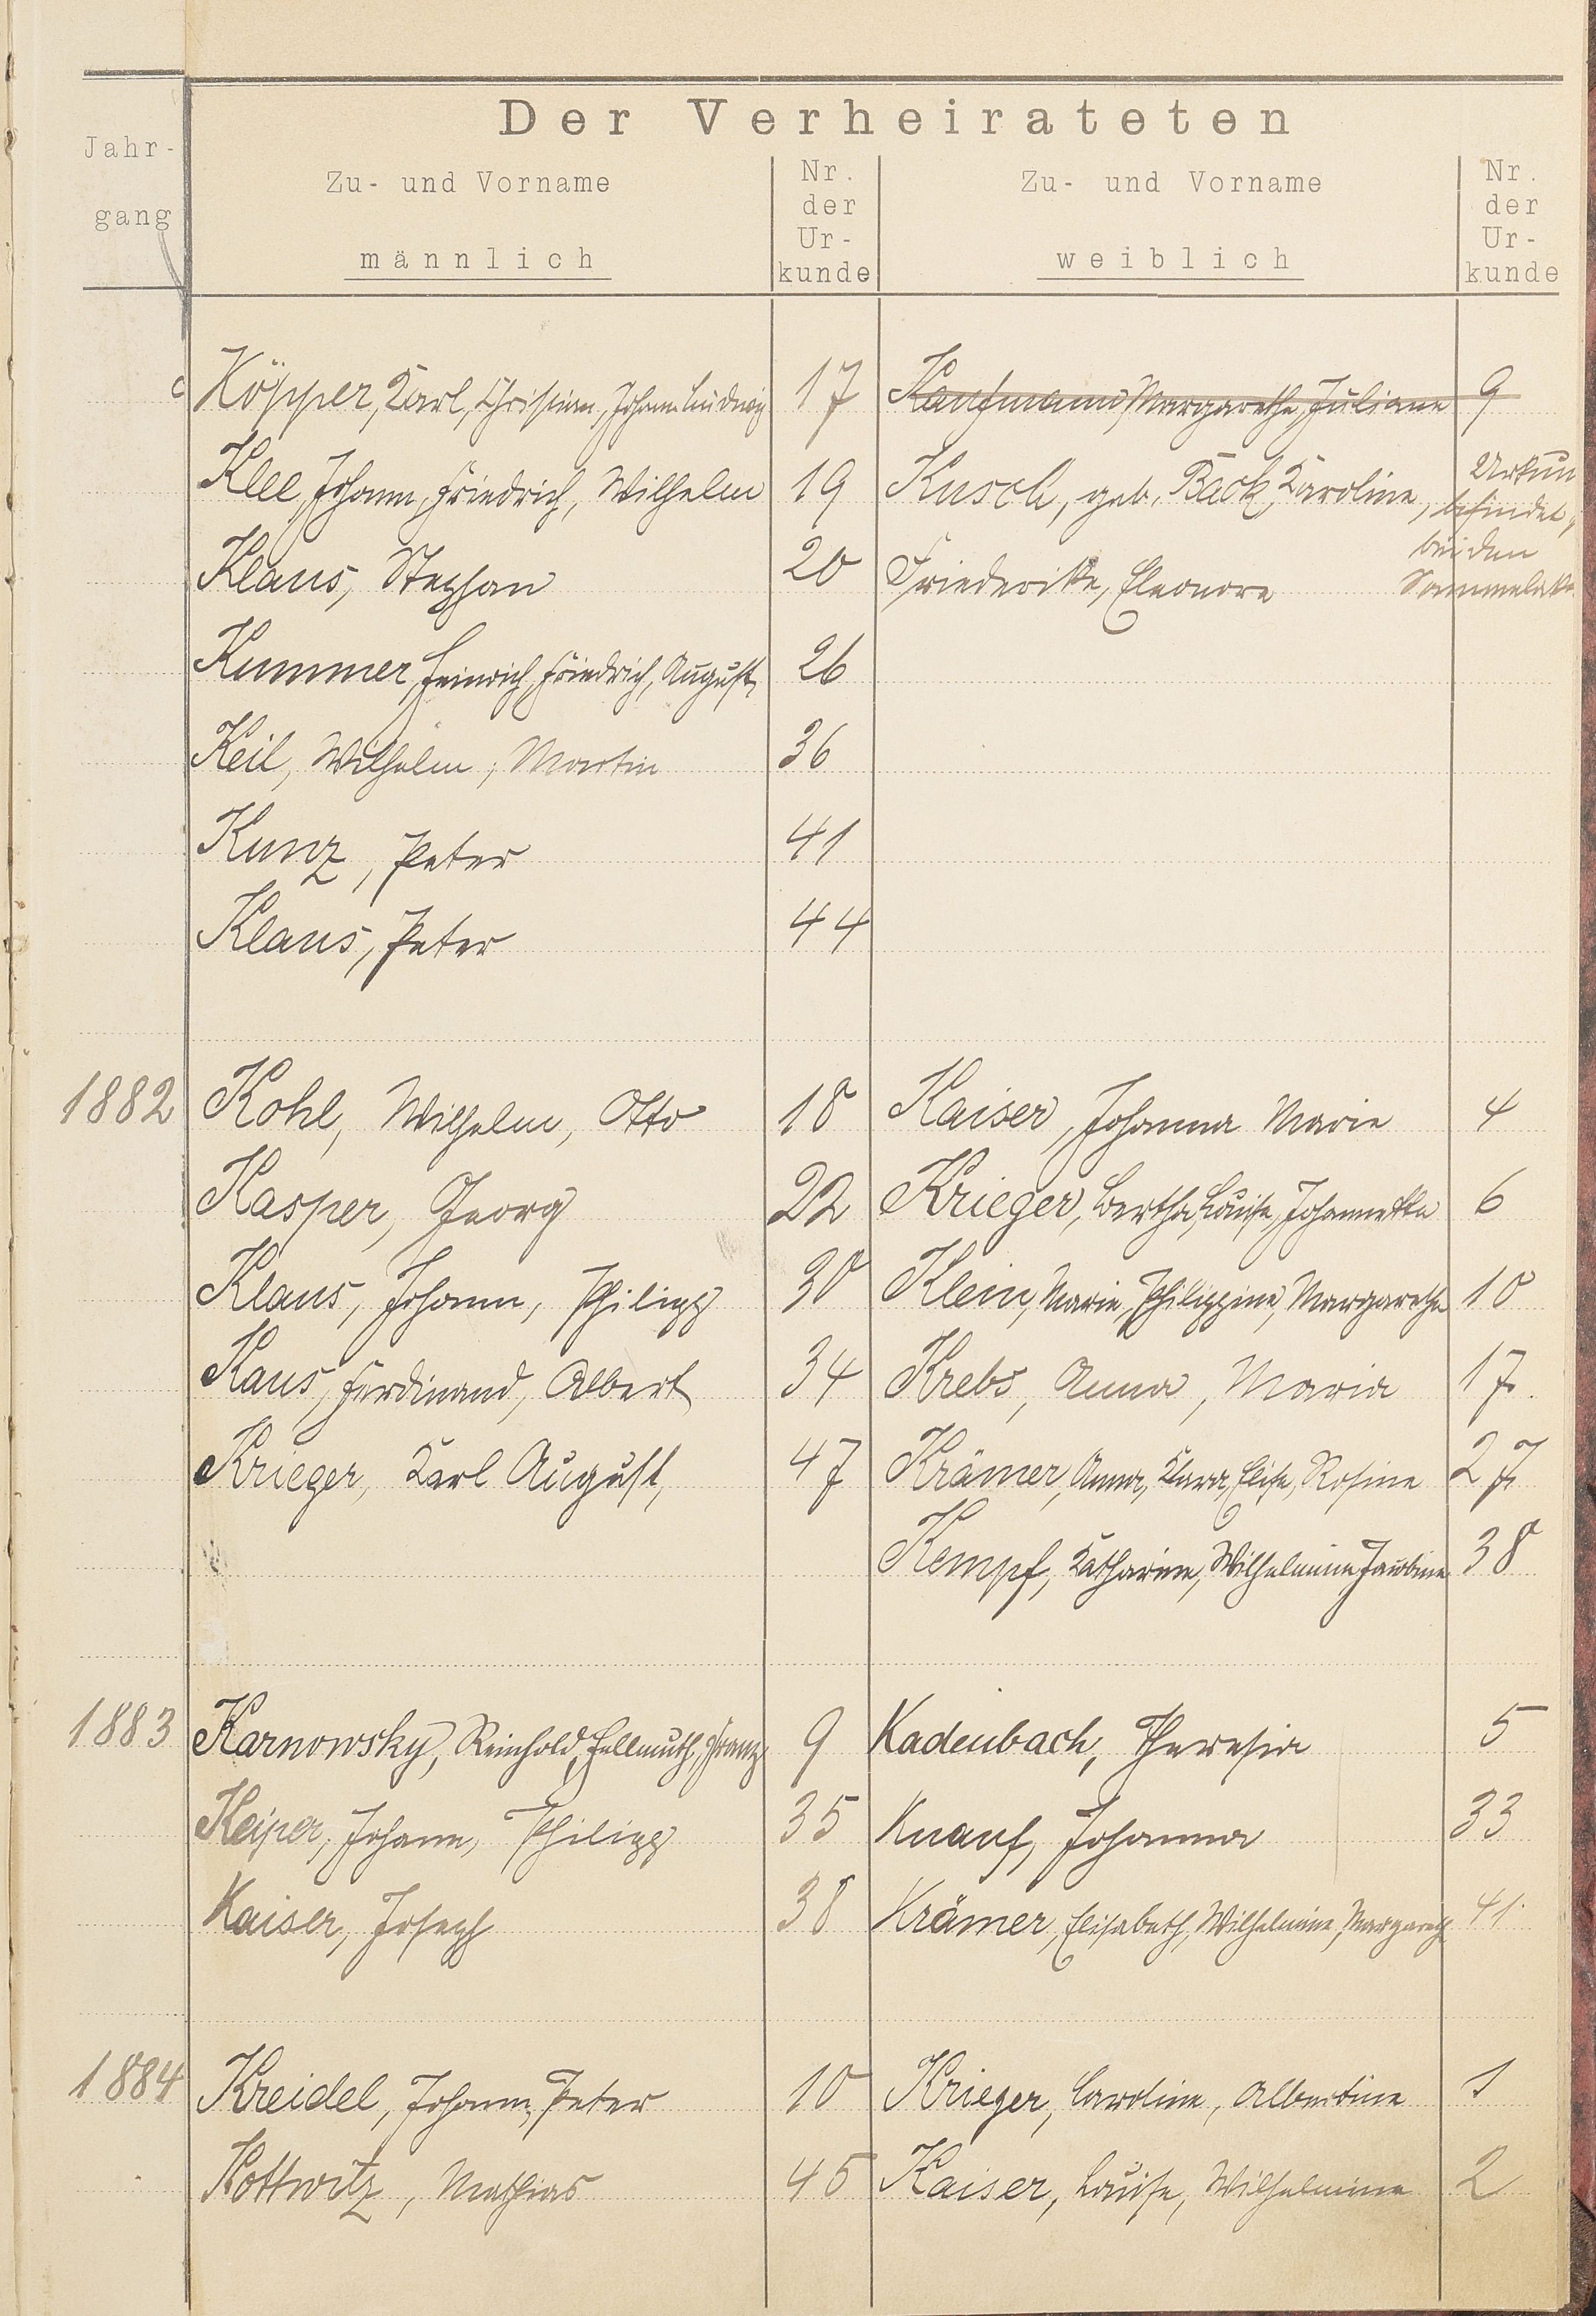 Der Verheirateten
Jahr-
gang
Zu- und Vorname
männlich
Nr.
der
Ur-
kunde
Zu- und Vorname
weiblich
Nr.
der
Ur-
kunde
Köpper, Karl, Christian, Johann Ludwig 17 Kaufmann, Margarethe, Juliane 9
Klee, Johann, Friedrich, Wilhelm 19 Kusch, geb. Back, Karoline, Urkun
befindet,
Klaus, Stephan 20 Friederike, Eleonore bei den
Sammelakt.
Kummer, Heinrich, Friedrich, August 26
Keil, Wilhelm, Martin 36
Kunz, Peter 41
Klaus, Peter 44
1882 Kohl, Wilhelm, Otto 18 Kaiser, Johanna Marie 4
Kasper, Georg 22 Krieger, Bertha, Louise, Johannette 6
Klaus, Johann, Philipp 30 Klein, Marie, Philippine, Margarethe 10
Kaus, Ferdinand, Albert 34 Krebs, Anna, Maria 17.
Krieger, Karl August, 47 Krämer, Anna, Klara, Elise, Rosine 27
Kempf, Katharine, Wilhelmine, Jacobine 38
1883 Karnowsky, Reinhold, Hellmuth, Franz 9 Kadenbach, Theresia 5
Keiper, Johann, Philipp 35 Knauf, Johanna 33
Kaiser, Joseph 38 Krämer, Elisabeth, Wilhelmine, Margareth 41.
1884 Kreidel, Johann, Peter 10 Krieger, Caroline, Albertine 1
Kottwitz, Mathias 45 Kaiser, Louise, Wilhelmine 2